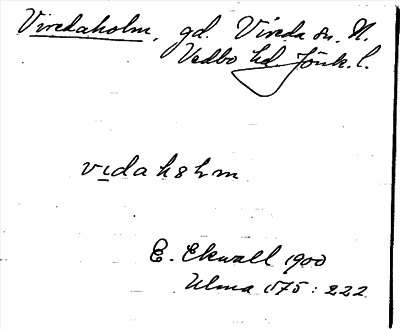 Viredaholm, gd. Vireda sn. N.
Vedbo hd. Jönk. l.
vidah8lm
E. Ekwall 1900
Ulma 575 : 222